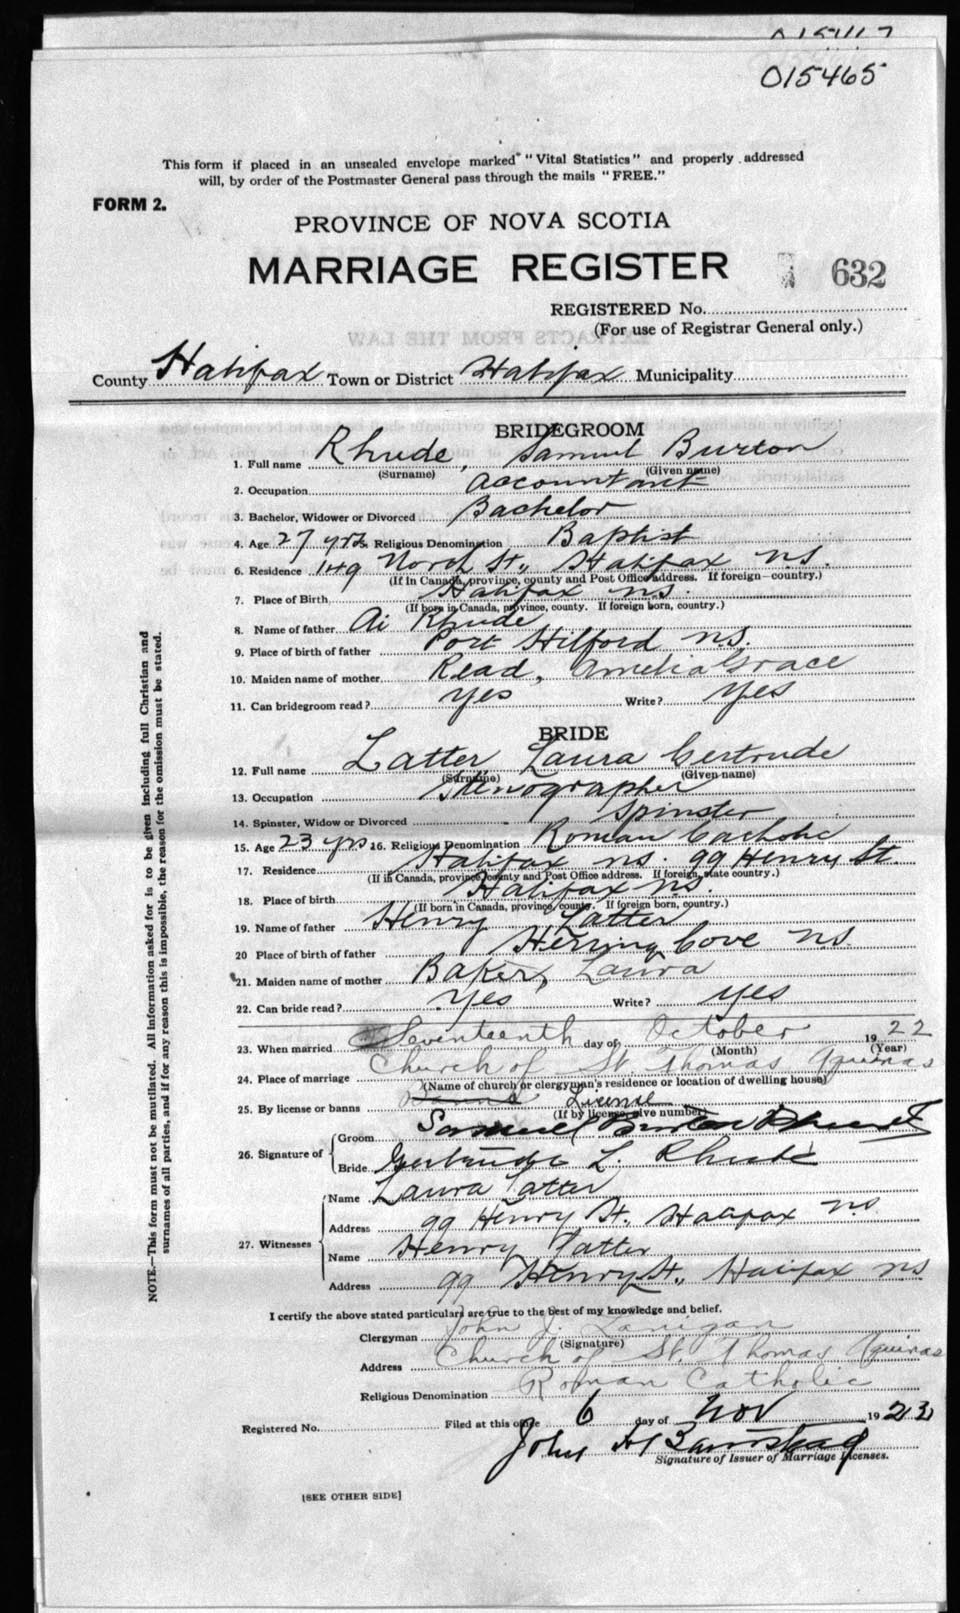 015465
This form if placed in an unsealed envelope marked "Vital Statistics" and properly addressed
will, by order of the Postmaster General pass through the mails "FREE."
FORM 2.
PROVINCE OF NOVA SCOTIA
MARRIAGE REGISTER 632
REGISTERED No.
(For use of Registrar General only.)
County Halifax Town or District Halifax Municipality
BRIDEGROOM
1. Full name Rhude, Samuel Burton
(Surname) (Given name)
2. Occupation accountant
3. Bachelor, Widower or Divorced Bachelor
4. Age 27 yrs. Religious Denomination Baptist
6. Residence 149 North St., Halifax N.S.
(If in Canada, province, county and Post Office address. If foreign—country.)
7. Place of Birth Halifax N.S.
(If born in Canada, province, county. If foreign born, country.)
8. Name of father Ai Rhude
9. Place of birth of father Port Hilford N.S.
10. Maiden name of mother Read, Amelia Grace
11. Can bridegroom read? Yes Write? Yes
BRIDE
12. Full name Latter Laura Gertrude
(Surname) (Given name)
13. Occupation Stenographer
14. Spinster, Widow or Divorced Spinster
15. Age 23 yrs. 16. Religious Denomination Roman Catholic
17. Residence Halifax N.S. 99 Henry St.
(If in Canada, province, county and Post Office address. If foreign, state country.)
18. Place of birth Halifax N.S.
(If born in Canada, province, county. If foreign born, country.)
19. Name of father Henry Latter
20 Place of birth of father Herring Cove N.S.
21. Maiden name of mother Baker, Laura
22. Can bride read? Yes Write? Yes
23. When married Seventeenth day of October 1922
(Month) (Year)
24. Place of marriage Church of St. Thomas Aquinas
(Name of church or clergyman's residence or location of dwelling house)
25. By license or banns Banns License
(If by license, give number)
26. Signature of
Groom Samuel Burton Rhude
Bride Gertrude L. Rhude
27. Witnesses
Name Laura Latter
Address 99 Henry St., Halifax N.S.
Name Henry Latter
Address 99 Henry St., Halifax N.S.
I certify the above stated particulars are true to the best of my knowledge and belief.
Clergyman John J. Lanigan
(Signature)
Address Church of St. Thomas Aquinas
Religious Denomination Roman Catholic
Registered No. Filed at this office 6 day of Nov 1923
John H Barnstead
Signature of Issuer of Marriage Licenses.
[SEE OTHER SIDE]
NOTE.—This form must not be mutilated. All information asked for is to be given including full Christian and
surnames of all parties, and if for any reason this is impossible, the reason for the omission must be stated.